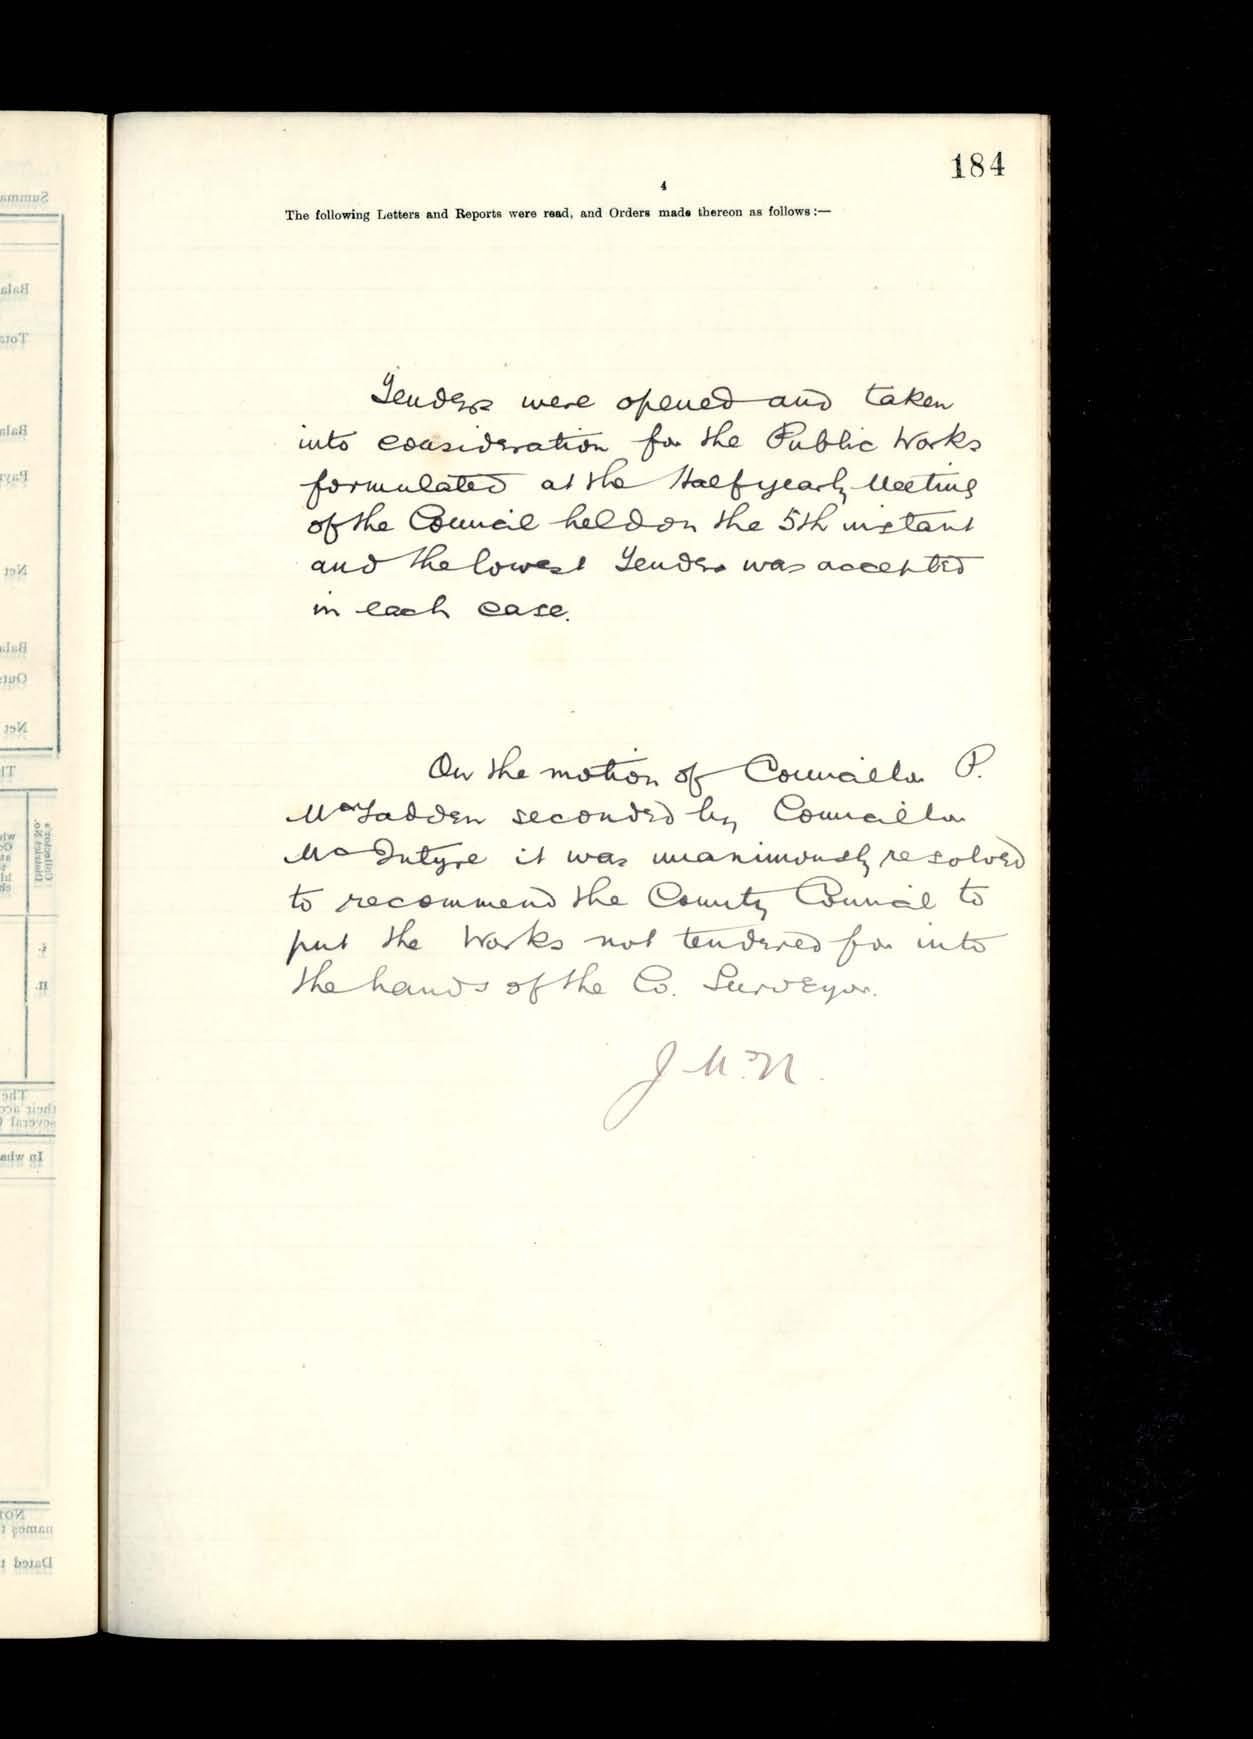 184
4
The following Letters and Reports were read, and Orders made thereon as follows:—
Tenders were opened and taken
into consideration for the Public Works
formulated at the Half yearly Meeting
of the Council held on the 5th instant
and the lowest Tender was accepted
in each case.
On the motion of Councillor P.
McFadden seconded by Councillor
McIntyre it was unanimously resolved
to recommend the County Council to
put the Works not tendered for into
the hands of the Co. Surveyor.
J McN.